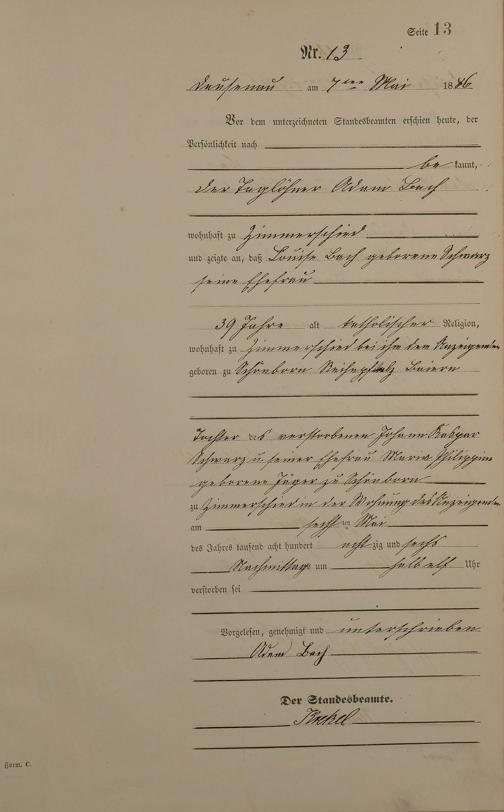 Seite 13
Nr. 13
Dausenau am 7ten Mai 1886
Vor dem unterzeichneten Standesbeamten erschien heute, der
Persönlichkeit nach
be kannt,
der Taglöhner Adam Bach
wohnhaft zu Zimmerschied
und zeigte an, daß Louise Bach geborene Schwarz
seine Ehefrau
39 Jahre alt katholischer Religion,
wohnhaft zu Zimmerschied bei ihm dem Anzeigenden
geboren zu Schönborn Baiern
Tochter des verstorbenen Johann Kaspar
Schwarz u. seiner Ehefrau Maria Philippine
geborene Jäger zu Schönborn
zu Zimmerschied in der Wohnung des Anzeigenden
am sechsten Mai
des Jahres tausend acht hundert achtzig und sechs
Nachmittags um halb elf Uhr
verstorben sei
Vorgelesen, genehmigt und unterschrieben
Adam Bach
Der Standesbeamte.
Form. C.